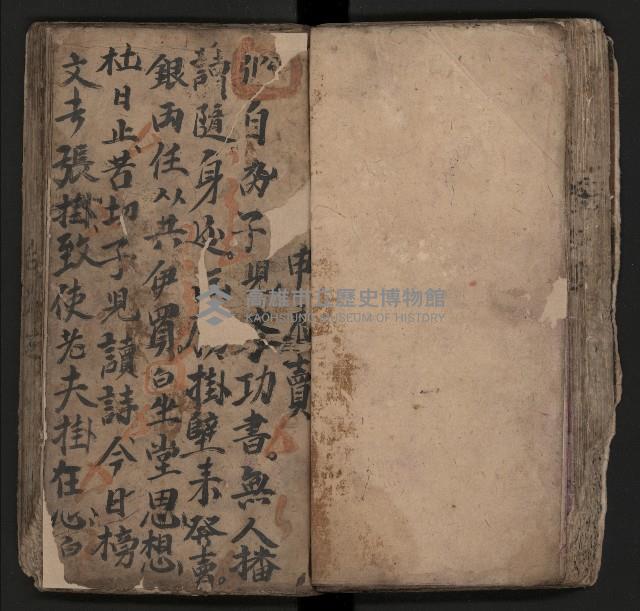 賣
自幼子兒功書。無人播
隨身掛壁未發賣。
銀両任从共伊買白坐堂思想
杜日止苦切子兒讀詩今日榜
文去張掛致使老夫掛在心白
高雄市立歷史博物館
KAOHSIUNG MUSEUM OF HISTORY